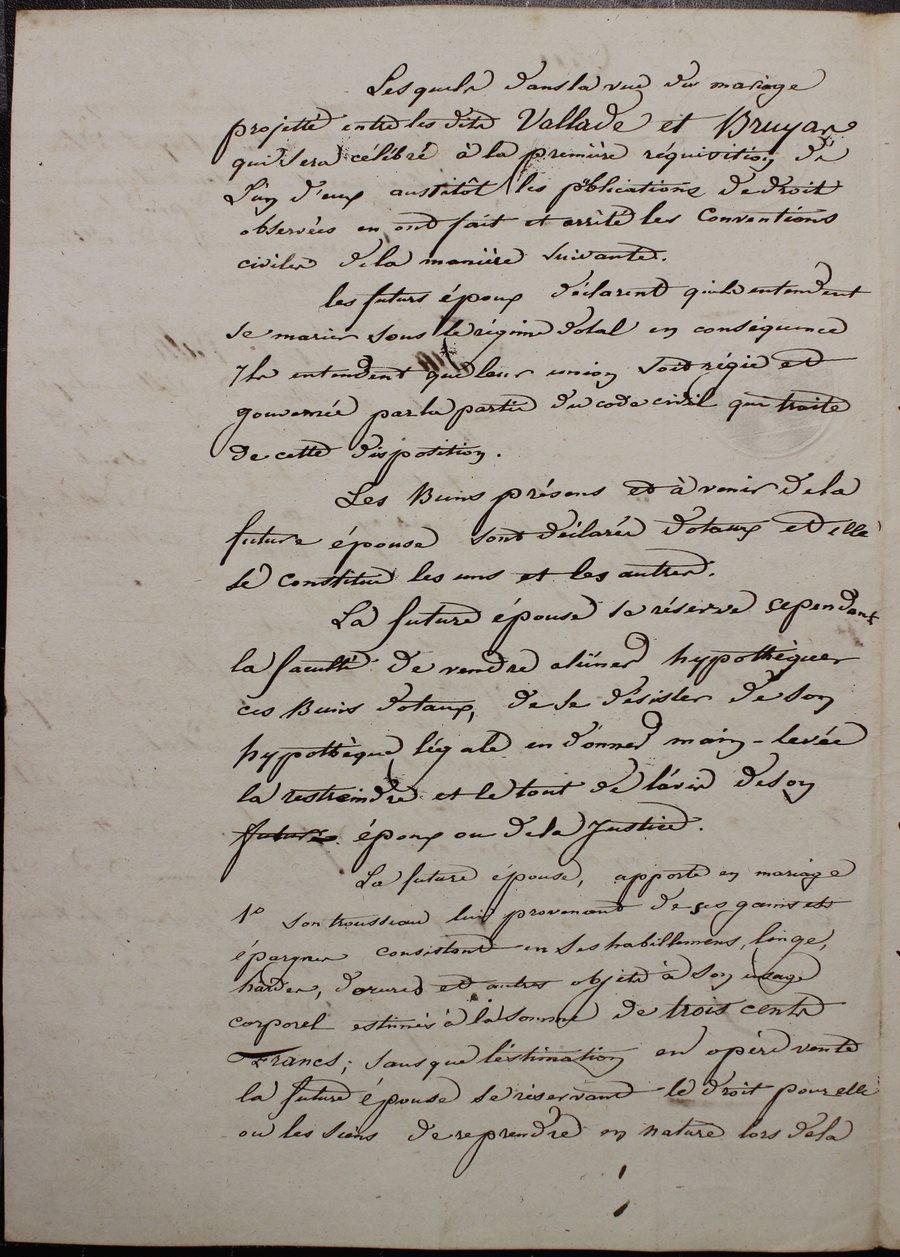 Lesquels dans la vue du mariage
projetté entre les dits Vallade et Bruyas
qui sera célébré à la première réquisition de
L'un d'eux aussitôt les publications de droit
observées en ont fait et arrêté les conventions
civiles de la manière suivante.
les futurs époux déclarent qu'ils entendent
se marier sous le régime dotal en conséquence
Ils entendent que leur union soit régie et
gouvernée par la partie du code civil qui traite
de cette disposition.
Les Biens présens et à venir de la
future épouse sont déclarés dotaux et elle
se constitue les uns et les autres.
La future épouse se réserve cependant
la faculté de vendre aliéner hypothéquer
ces Biens dotaux, de se désister de son
hypothèque légale en donner main-levée
la restreindre et le tout de l'avis de son
futur époux ou de la Justice.
La future épouse, apporte en mariage
1º son trousseau lui provenant de ses gains et
épargnes consistant en ses habillemens, linge,
hardes, dorures et autres objets à son usage
corporel estimés à la somme de trois cents
Francs; sans que l'estimation en opère vente
la future épouse se réservant le droit pour elle
ou les siens de reprendre en nature lors de la